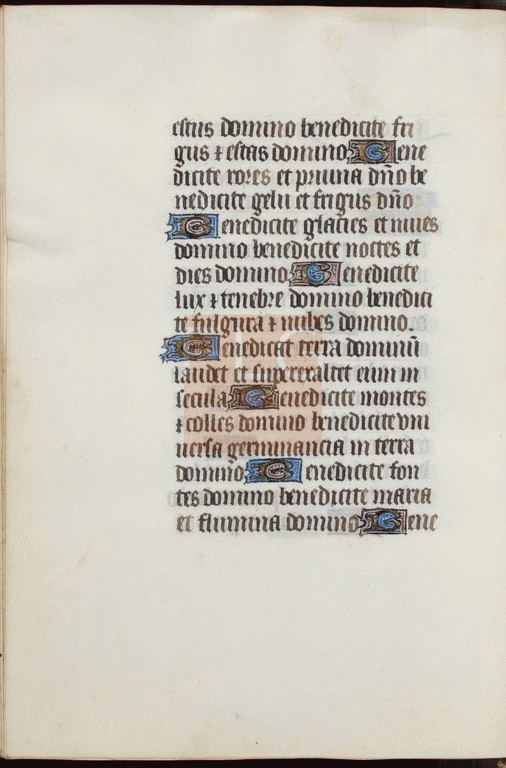 estus domino benedicite fri
gus ⁊ estas domino Bene
dicite rores et pruina dño be
nedicite gelu et frigus dño
Benedicite glacies et niues
domino benedicite noctes et
dies domino Benedicite
lux ⁊ tenebre domino benedici
te fulgura ⁊ nubes domino.
Benedicat terra dominū
laudet et superexaltet eum in
secula Benedicite montes
⁊ colles domino benedicite vni
uersa germinancia in terra
domino Benedicite fon
tes domino benedicite maria
et flumina domino Bene